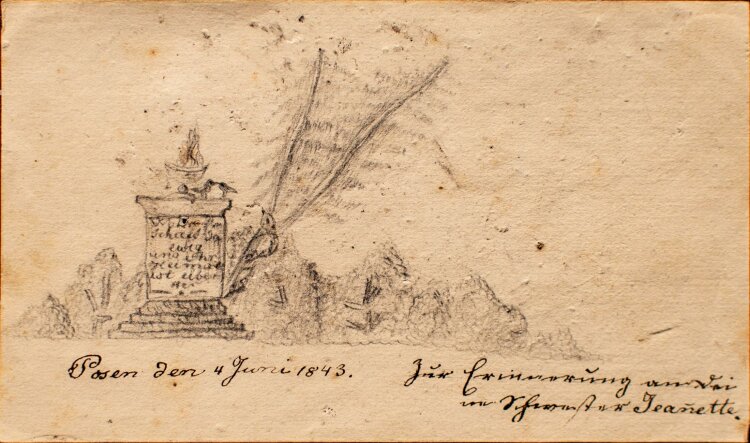 schaft
ewig
und ihr
ist über
Posen den 4 Juni 1843.
Zur Erinnerung an Dei
ne Schwester Jeanette.